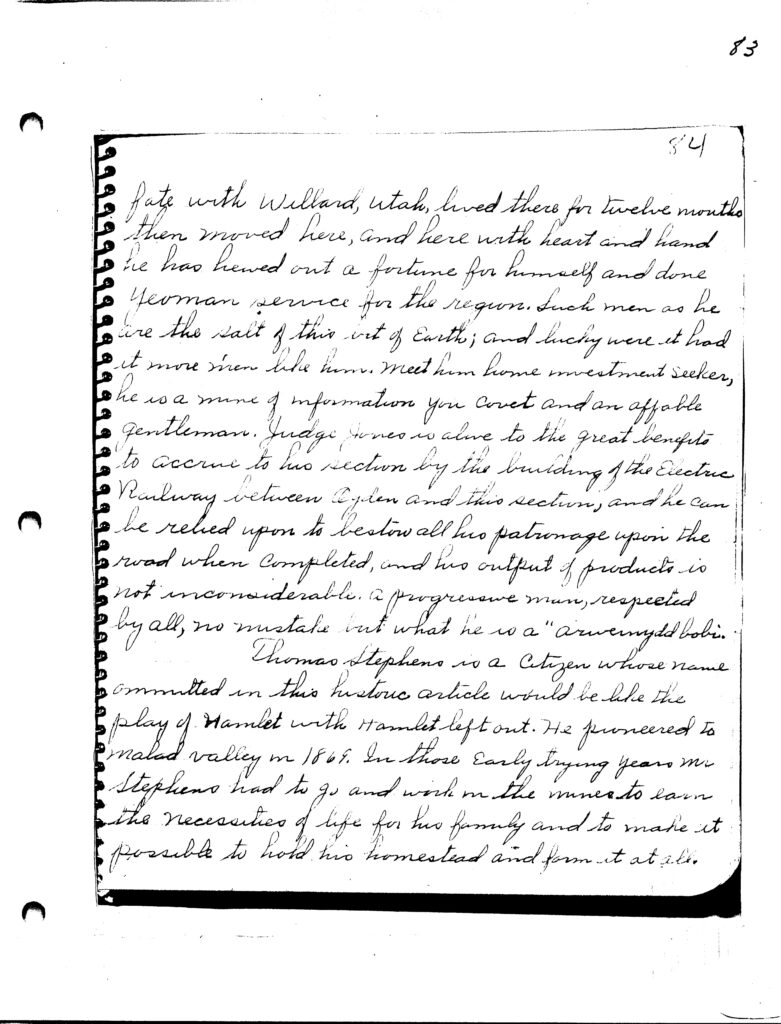 83
84
fate with Willard, Utah, lived there for twelve months
then moved here, and here with heart and hand
he has hewed out a fortune for himself and done
yeoman service for the region. Such men as he
are the salt of this bit of Earth; and lucky were it had
it more men like him. Meet him home investment seeker,
he is a mine of information you covet and an affable
gentleman. Judge Jones is alive to the great benefits
to accrue to his section by the building of the Electric
Railway between Ogden and this section, and he can
be relied upon to bestow all his patronage upon the
road when completed, and his output of products is
not inconsiderable. A progressive man, respected
by all, no mistake but what he is a "arweinydd bobi.
Thomas Stephens is a Citizen whose name
ommitted in this historic article would be like the
play of Hamlet with Hamlet left out. He pioneered to
Malad Valley in 1869. In those Early trying years Mr
Stephens had to go and work in the mines to earn
the necessities of life for his family and to make it
possible to hold his homestead and farm it at all.